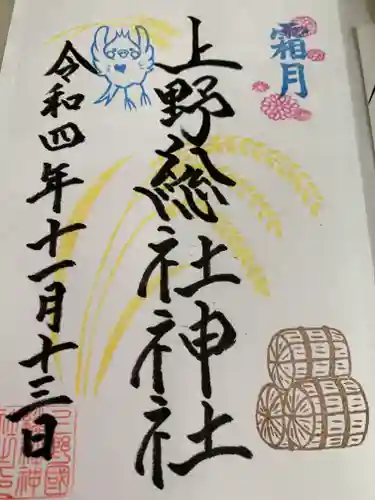 霜月
上野総社神社
令和四年十一月十三日